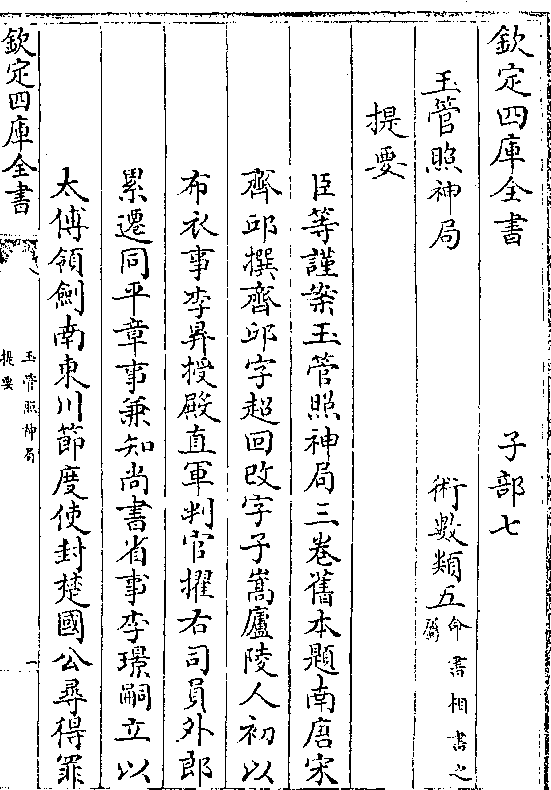 欽定四庫全書　子部七
玉管照神局　術數類五命書相書之屬
提要
臣等謹案玉管照神局三卷舊本題南唐宋
齊邱撰齊邱字超回改字子嵩廬陵人初以
布衣事李昪授殿直軍判官擢右司員外郎
累遷同平章事兼知尚書省事李璟嗣立以
太傅領劍南東川節度使封楚國公尋得罪
欽定四庫全書
玉管照神局
提要
一